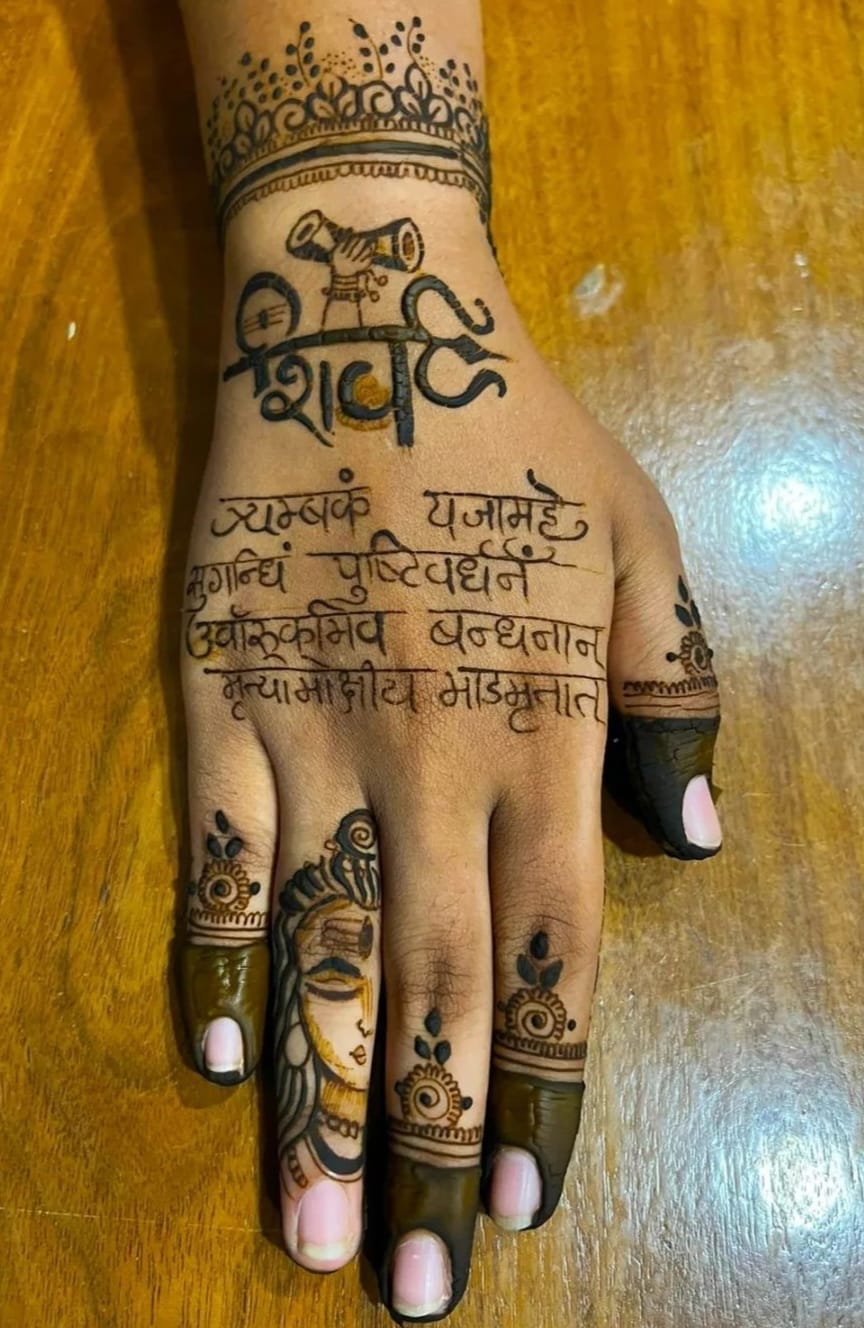 शिव
त्र्यम्बकं यजामहे
सुगन्धिं पुष्टिवर्धनं
उर्वारुकमिव बन्धनान्
मृत्योमोक्षीय माऽमृतात्